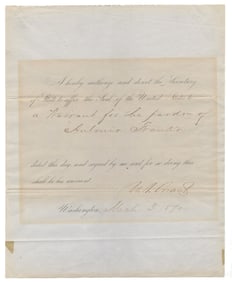 I hereby authorize and direct the Secretary
of State to affix the Seal of the United States to
a Warrant for the pardon of
Antonio
dated this day and signed by me and for so doing this
shall be his warrant
U.S. Grant
Washington, March 3, 187